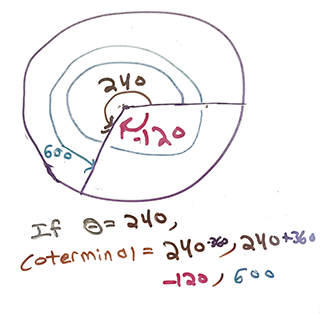 240
-120
600
If θ = 240,
Coterminal = 240-360, 240+360
-120, 600